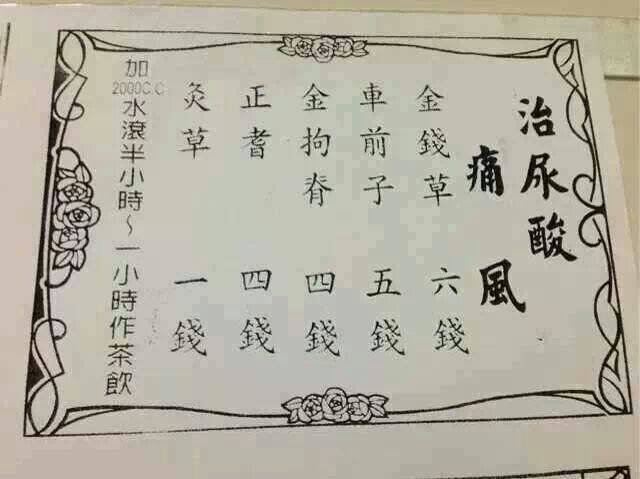 治尿酸
痛風
金錢草 六錢
車前子 五錢
金拘脊 四錢
正耆 四錢
灸草 一錢
加2000C.C水滾半小時～一小時作茶飲